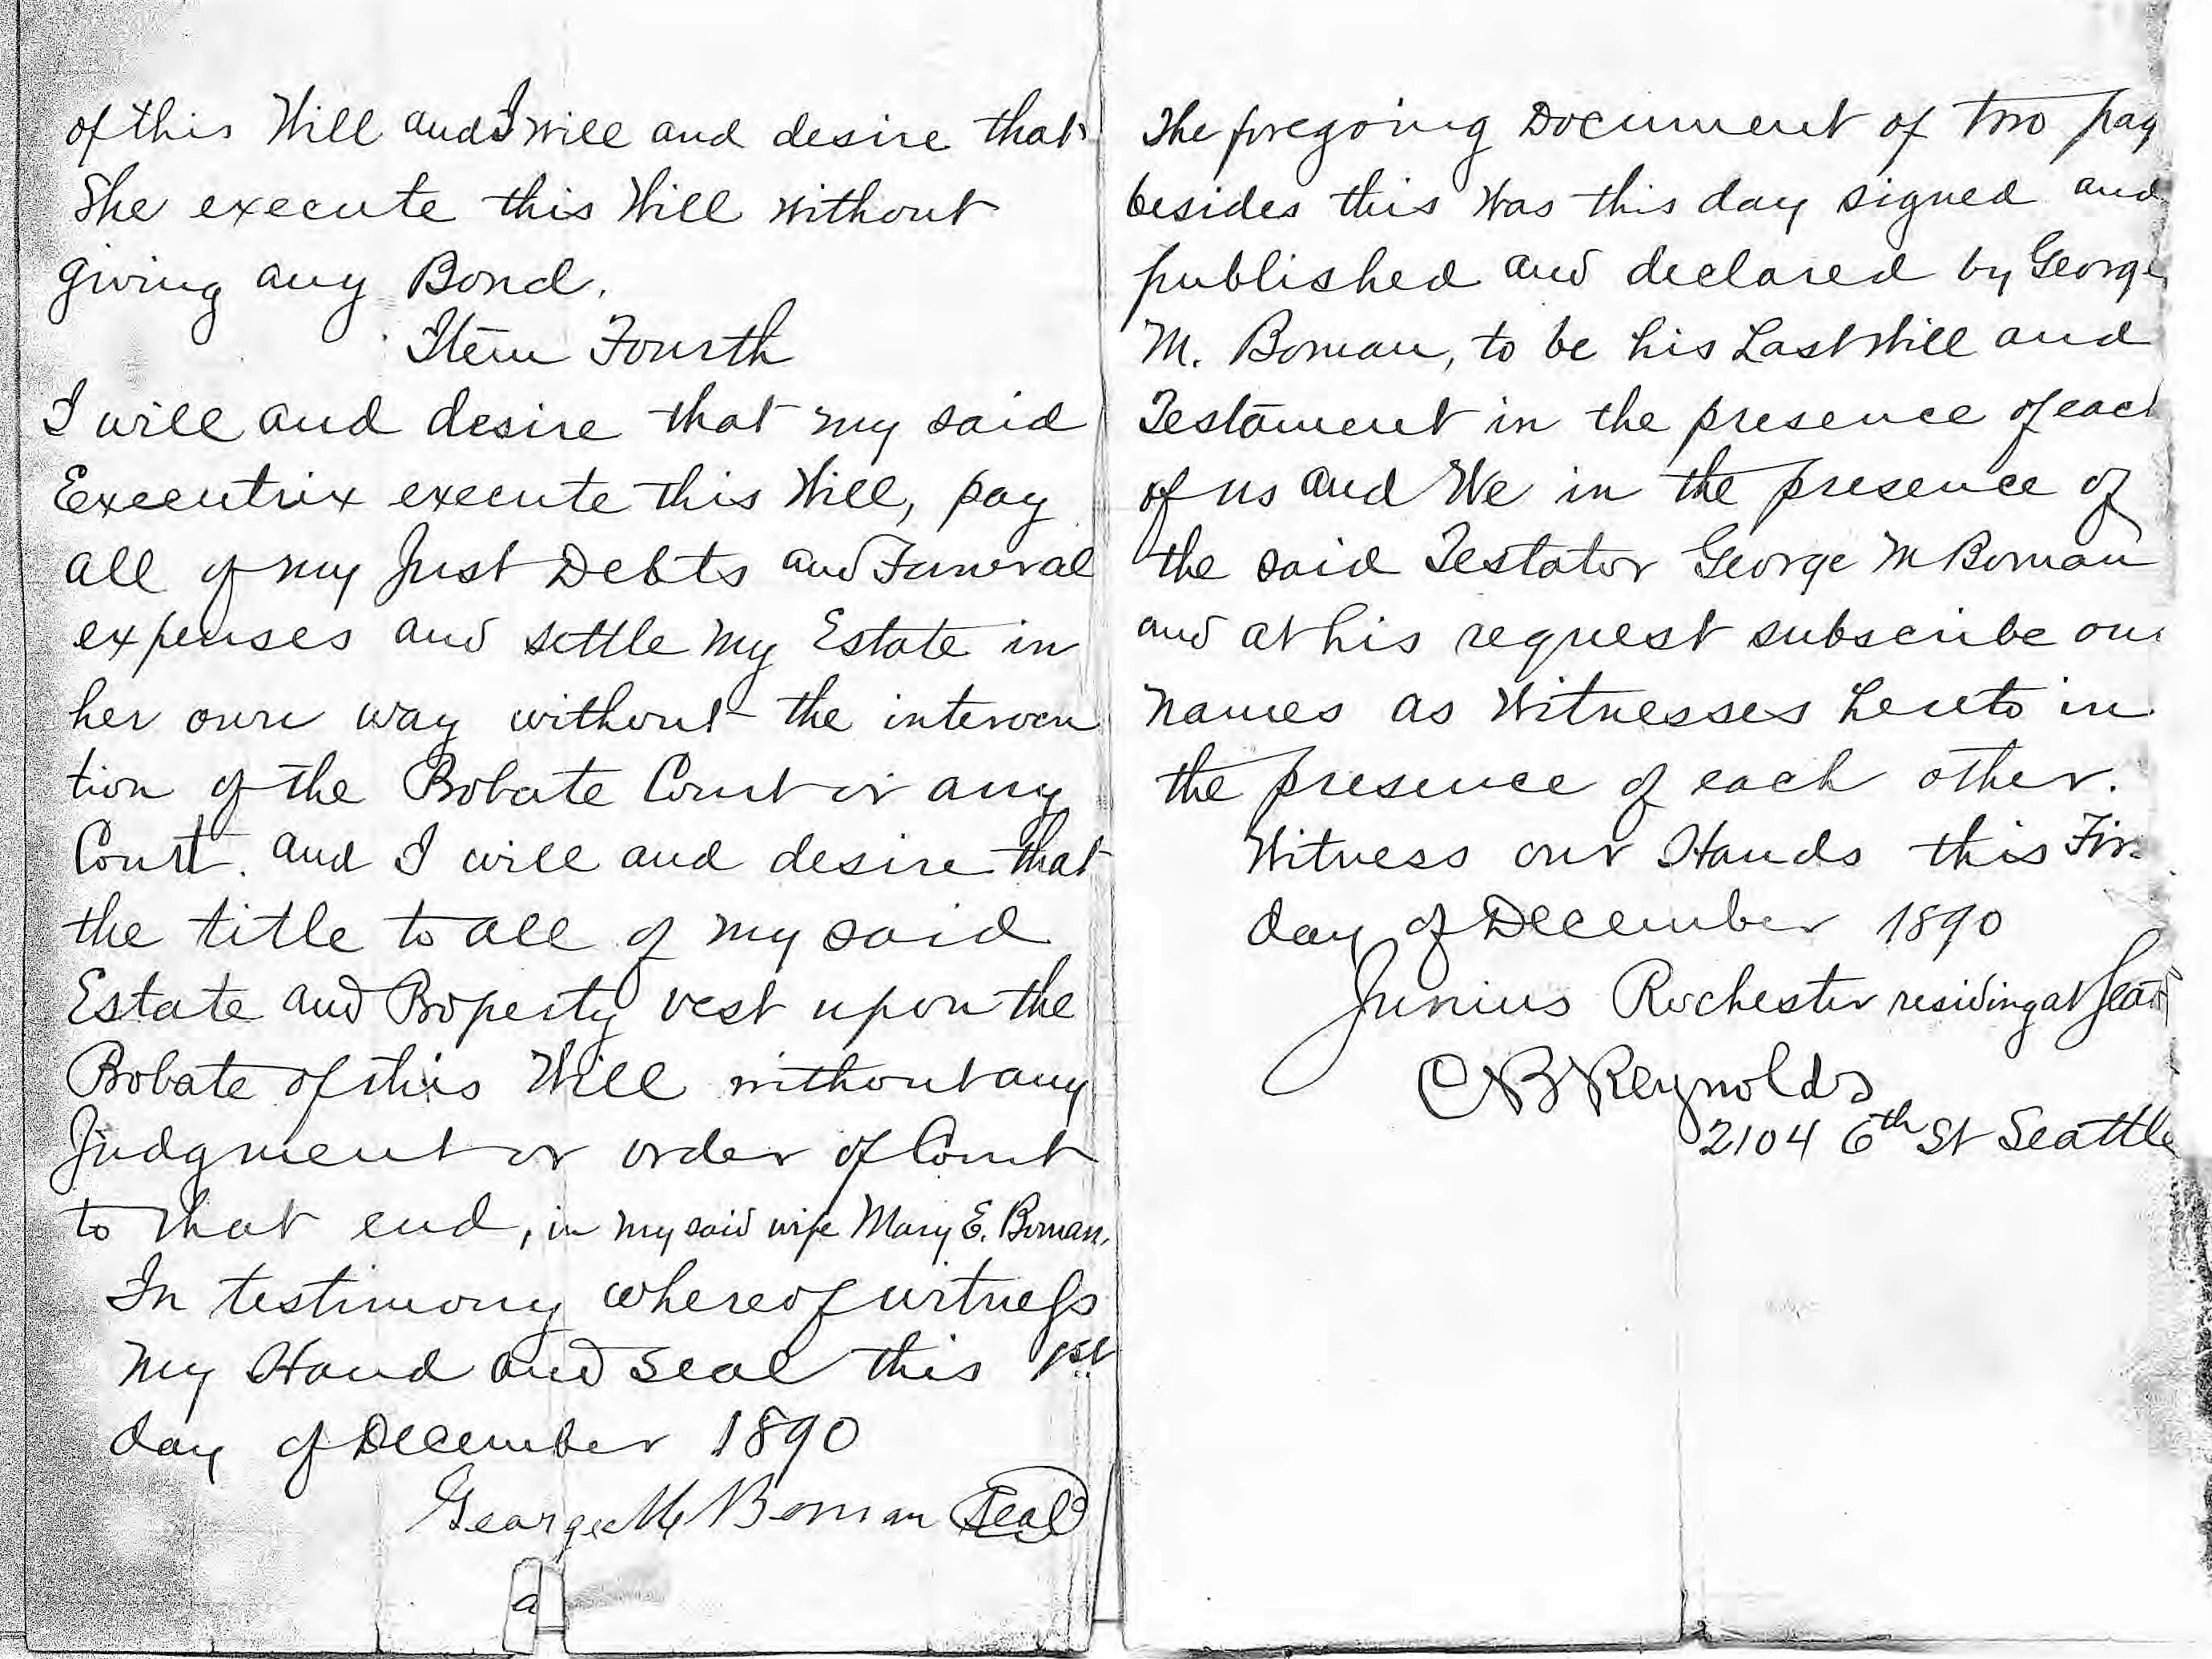 of this Will and I will and desire that
She execute this Will without
giving any Bond.
Item Fourth
I will and desire that my said
Executrix execute this Will, pay
all of my Just Debts and Funeral
expenses and settle my Estate in
her own way without the interven
tion of the Probate Court or any
Court. and I will and desire that
the title to all of my said
Estate and Property vest upon the
Probate of this Will without any
Judgment or order of Court
to that end, in my said wife Mary E. Boman.
In testimony whereof witness
my Hand and seal this 1st
day of December 1890
George M Boman Seal
a
The foregoing Document of two pag
besides this was this day signed and
published and declared by George
M. Boman, to be his Last Will and
Testament in the presence of eac
of us and We in the presence of
the said Testator George M Boman
and at his request subscribe our
names as Witnesses hereto in
the presence of each other.
Witness our Hands this Fir
day of December 1890
Junius Rochester residing at Seat
C B Reynolds
2104 6th St Seattle